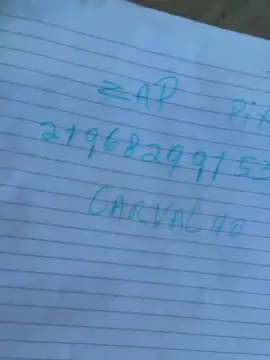 ZAP Pix
21968299153
CARVALHO